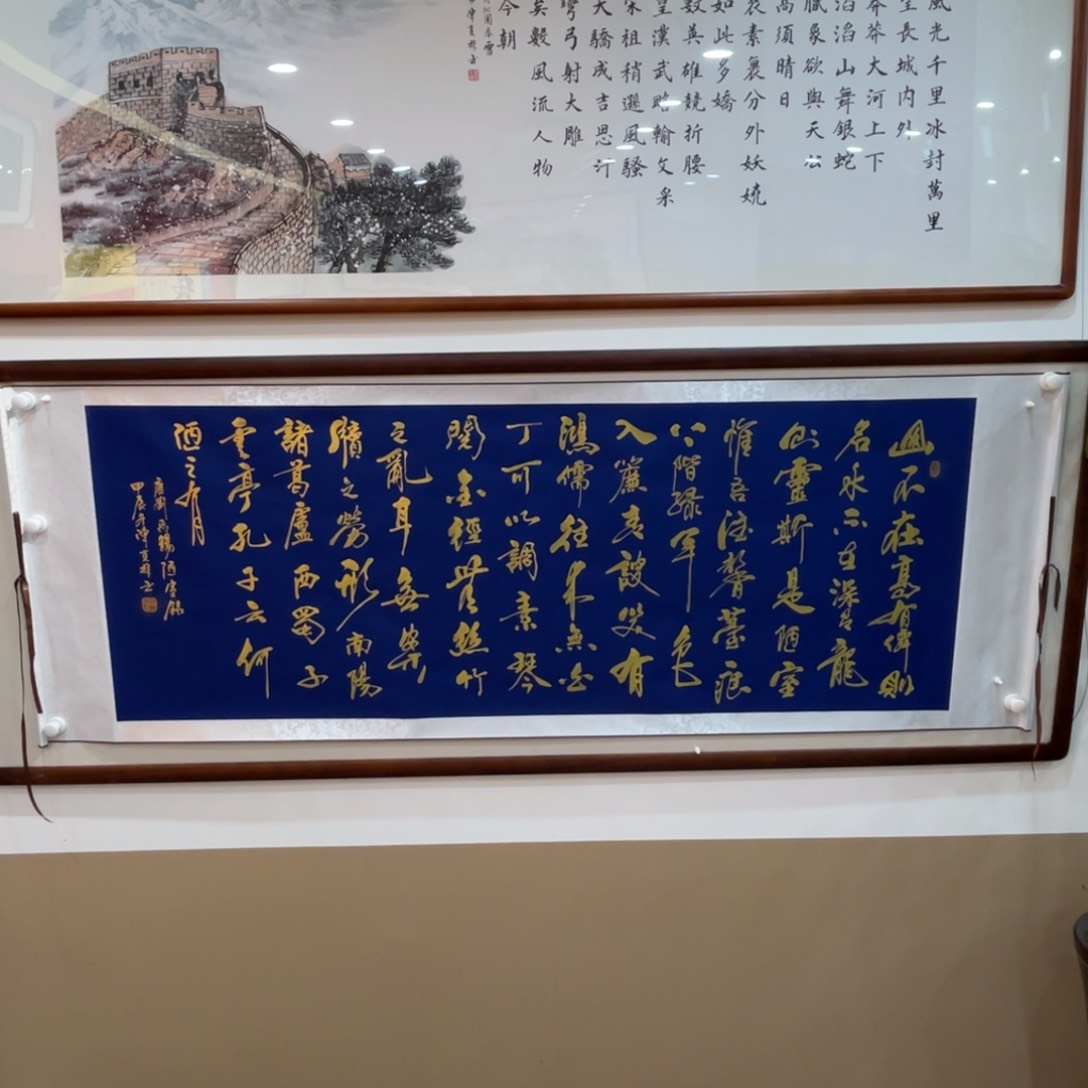 風光千里冰封萬里
望長城内外
莽莽大河上下
滔滔山舞銀蛇
臘象欲與天公
高須晴日
素裹分外妖嬈
如此多嬌
數英雄競折腰
皇漢武略輸文采
宋祖稍遜風騷
天驕成吉思汗
彎弓射大雕
矣數風流人物
今朝
山不在高有僊則
名水不在深有龍
則靈斯是陋室
惟吾德馨薹痕
上階綠草色
入簾青談笑有
鴻儒往來無白
丁可以調素琴
閱金經無絲竹
之亂耳無案
牘之勞形南陽
諸葛廬西蜀子
雲亭孔子云何
陋之有
唐劉禹錫陋室銘
甲辰年